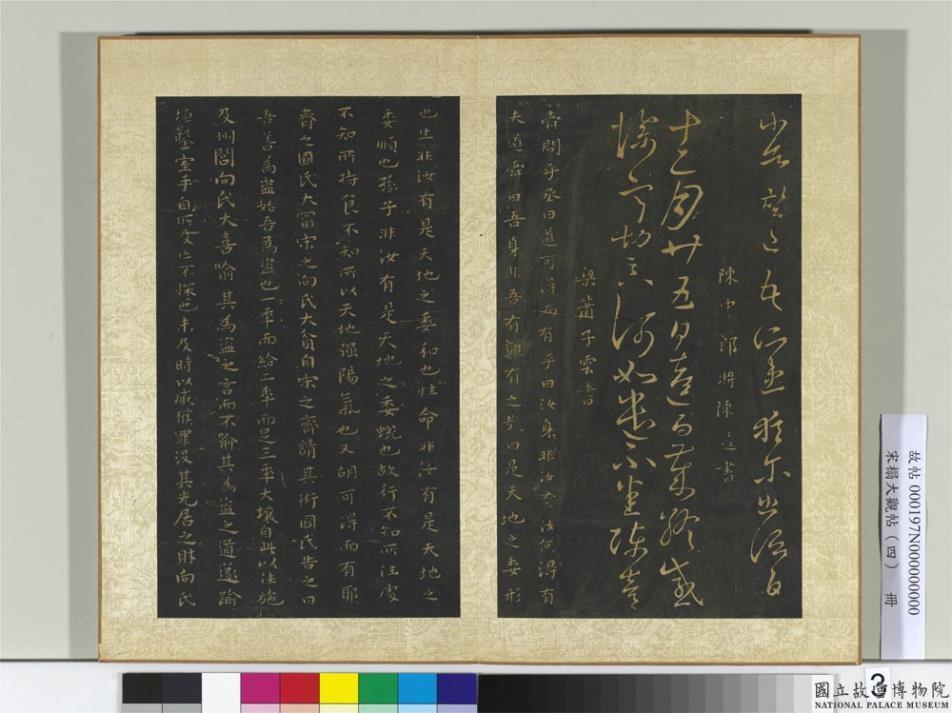 陳中郎將陳逵書
十二月廿五日逵白歲終感
梁蕭子雲書
舜問乎丞曰道可得而有乎曰汝身非汝有汝何得有
夫道舜曰吾身非吾有孰有之哉曰是天地之委形
也生非汝有是天地之委和也性命非汝有是天地之
委順也孫子非汝有是天地之委蛻也故行不知所往處
不知所持食不知所以天地强陽氣也又胡可得而有耶
齊之國氏大富宋之向氏大貧自宋之齊請其術國氏告之曰
吾善為盜始吾為盜也一年而給二年而足三年大壤自此以往施
及州閭向氏大喜喻其為盜之言而不喻其為盜之道遂踰
垣鑿室手目所及亡不探也未及時以贓獲罪沒其先居之財向氏
故帖000197N000000000
宋搨大觀帖（四） 冊
3
國立故宮博物院
NATIONAL PALACE MUSEUM